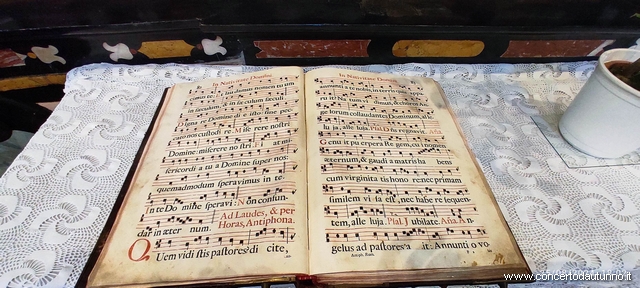 In Nativitate Domini
& in sæculum sæculi
Dignare Domine di e isto sine pec-
cato nos custodi re. Mi se rere nostri
Domine: miserere nostri. F at mi
sericordi a tu a Domine super nos:
quemadmodum speravimus in te
In te Do mine speravi: Non confun-
dar in æter num.
Ad Laudes, & per
Horas, Antiphona.
Quem vidi stis pastores? di cite,
In Nativitate Domini.
gelorum collaudantes Dominum, alle
lu ja, alle luja. Psal.
Genu it pu erpera Re gem, cu i nomen
æternum, & gaudi a matris ha bens
cum virginita tis hono re: nec primam
similem vi sa est, nec habe re sequen-
tem, alle luja. Psal. Jubilate. Aña. A n-
gelus ad pastores a it: Annunti o vo-
www.concertodautunno.it